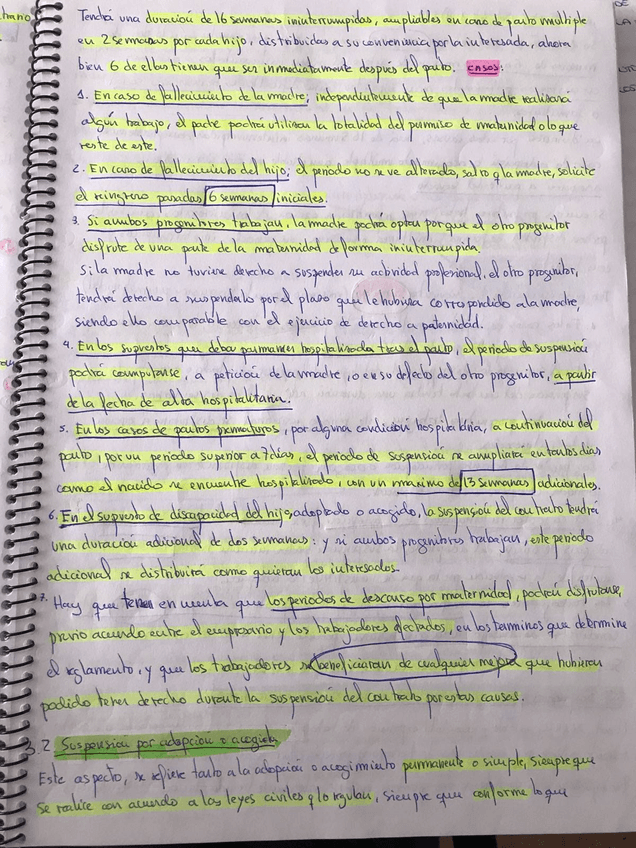 Tendrá una duración de 16 semanas ininterrumpidas, ampliables en caso de parto múltiple
en 2 semanas por cada hijo, distribuidas a su conveniencia por la interesada, ahora
bien 6 de ellas tienen que ser inmediatamente después del parto. CASOS:
1. En caso de fallecimiento de la madre, independientemente de que la madre realizará
algún trabajo, el padre podrá utilizar la totalidad del permiso de maternidad o lo que
reste de este.
2. En caso de fallecimiento del hijo, el periodo no se ve alterado, salvo q la madre, solicite
el reingreso pasadas 6 semanas iniciales.
3. Si ambos progenitores trabajan, la madre podrá optar por que el otro progenitor
disfrute de una parte de la maternidad de forma ininterrumpida.
Si la madre no tuviere derecho a suspender su actividad profesional, el otro progenitor,
tendrá derecho a suspenderlo por el plazo que le hubiera correspondido a la madre,
siendo ello comparable con el ejercicio de derecho a paternidad.
4. En los supuestos que deba permanecer hospitalizado tras el parto, el periodo de suspensión
podrá computarse, a petición de la madre, o en su defecto del otro progenitor, a partir
de la fecha de alta hospitalaria.
5. En los casos de partos prematuros, por alguna condición hospitalaria, a continuación del
parto, por un periodo superior a 7 días, el periodo de suspensión se ampliará en tantos días
como el nacido se encuentre hospitalizado, con un maximo de 13 semanas adicionales.
6. En el supuesto de discapacidad del hijo, adoptado o acogido, la suspensión del contrato tendrá
una duración adicional de dos semanas: y si ambos progenitores trabajan, este periodo
adicional se distribuirá como quieran los interesados.
7. Hay que tener en cuenta que los periodos de descanso por maternidad, podrán disfrutarse,
previo acuerdo entre el empresario y los trabajadores afectados, en los terminos que determine
el reglamento, y que los trabajadores se beneficiaran de cualquier mejora que hubieran
podido tener derecho durante la suspensión del contrato por estas causas.
3.2 Suspensión por adopción o acogida
Este aspecto, se refiere tanto a la adopción o acogimiento permanente o simple, siempre que
se realice con acuerdo a las leyes civiles q lo regulan, siempre que conforme lo que